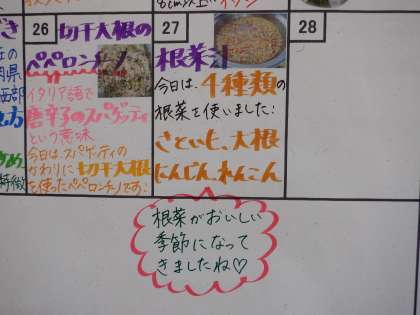 26
切干大根の
ペペロンチーノ
イタリア語で
唐辛子のスパゲッティ
という意味
今日は、スパゲッティの
かわりに切干大根
を使ったペペロンチーノです。
27
根菜汁
今日は、4種類の
根菜を使いました:
さといも、大根
にんじん、れんこん
28
根菜がおいしい
季節になって
きましたね♡